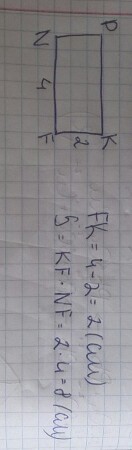 N P
4
F 2 K
FK = 4-2 = 2 (см)
S = KF · NF = 2 · 4 = 8 (см)